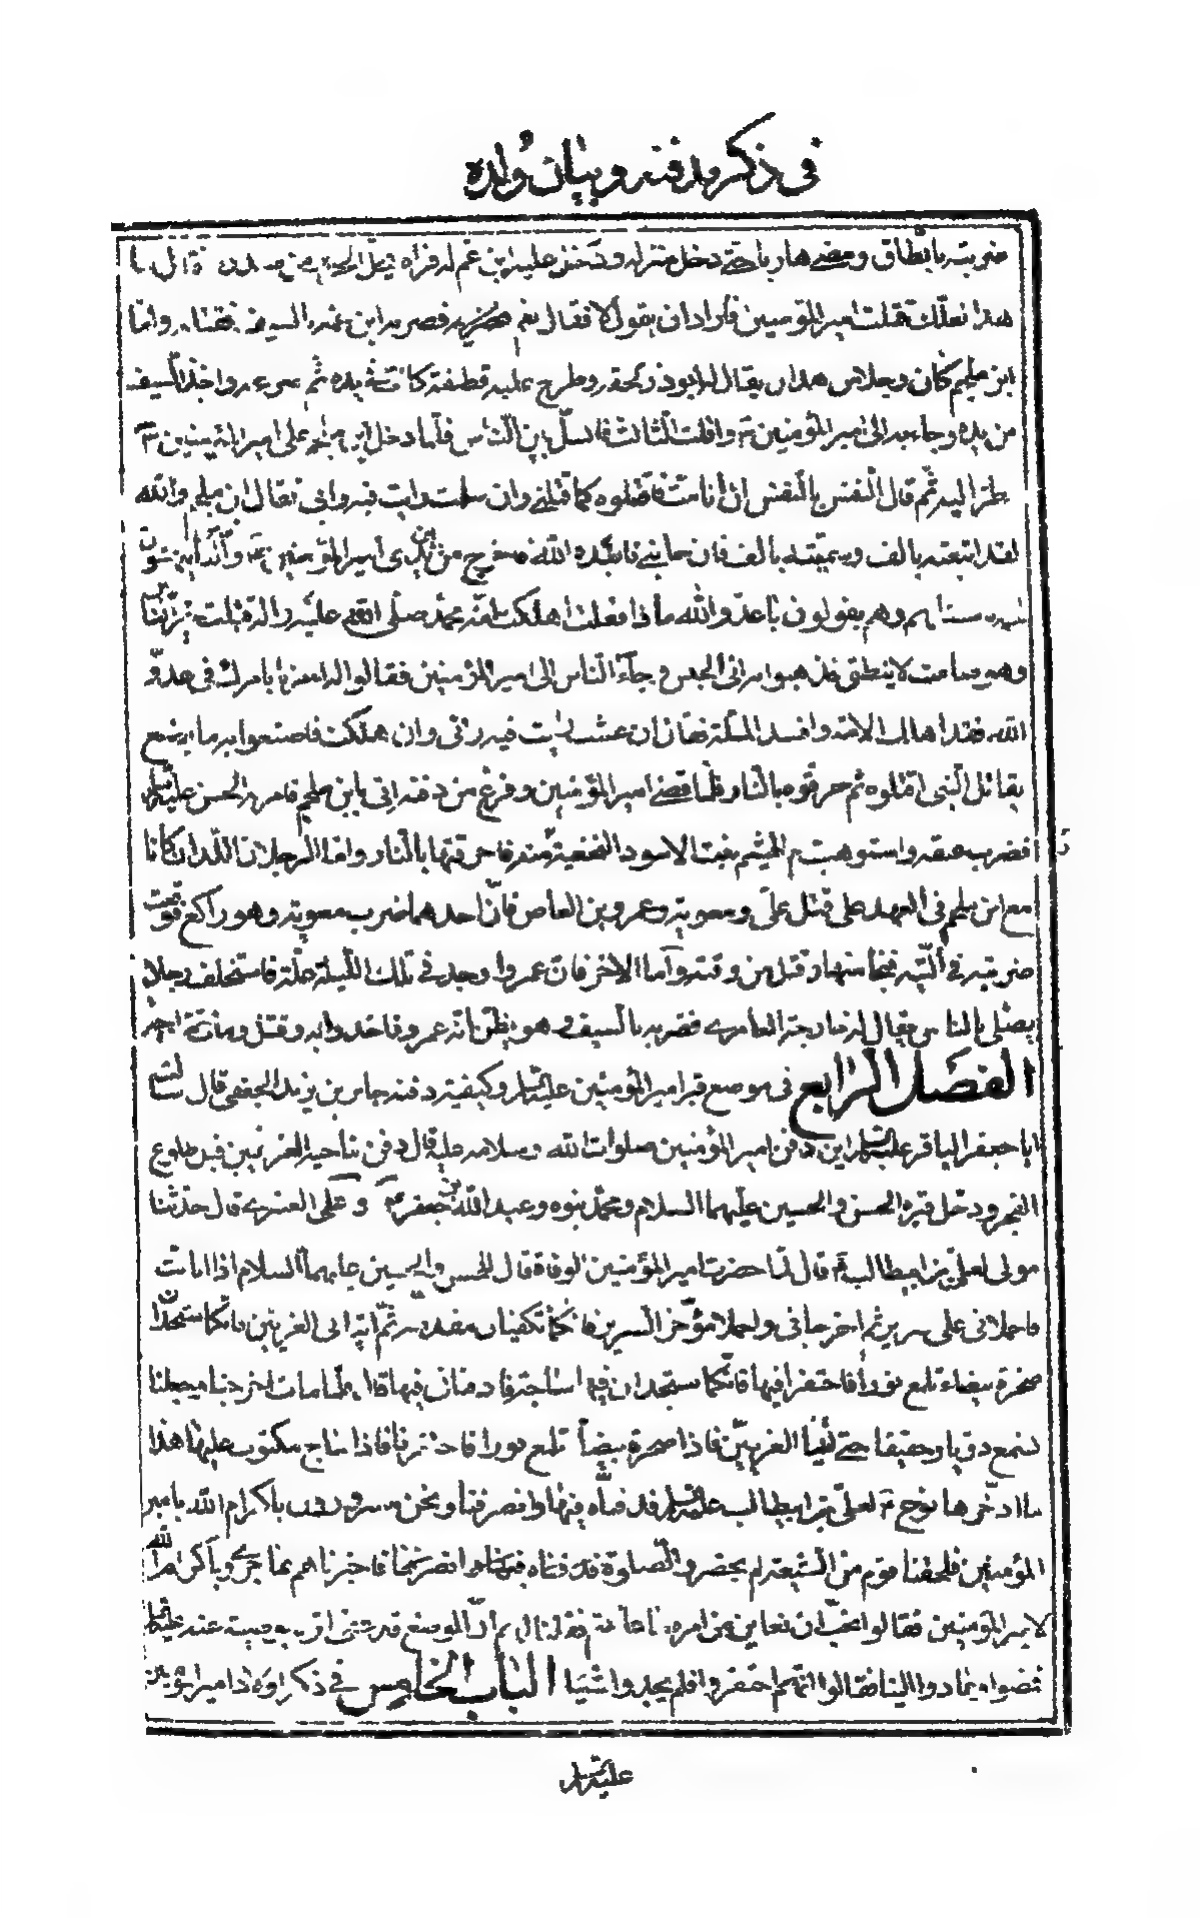 في ذكر مدفنه وبيان ولده
ضربته بالطاق ومضى هاربا حتى دخل منزله ودخل عليه ابن عم له فراه يحل الحرير من صدره قال ما
هذا لعلك قتلت امير المؤمنين فأراد ان يقول لا فقال نعم فضربه ابن عمه بالسيف فقتله واما
ابن ملجم فان رجلا من همدان يقال له ابو ذر لحقه وطرح عليه قطيفة كانت في يده ثم صرعه واخذ السيف
من يده وجاء به الى امير المؤمنين ع وافلت الثالث فانسل بين الناس فلما دخل ابن ملجم على امير المؤمنين ع
نظر اليه ثم قال النفس بالنفس ان انا مت فاقتلوه كما قتلني وان سلمت رايت فيه رأيي فقال ابن ملجم والله
لقد ابتعته بالف وسممته بالف فان خانني فابعده الله فاخرج من بين يدي امير المؤمنين ع والناس ينهشون
لحمه باسنانهم وهم يقولون يا عدو الله ماذا فعلت اهلكت امة محمد صلى الله عليه واله قتلت خير الناس
وهو صامت لا ينطق فذهبوا به الى الحبس وجاء الناس الى امير المؤمنين فقالوا له مرنا بامرك في عدو
الله فقد اهلك الامة وافسد الملة فقال ان عشت رايت فيه رأيي وان هلكت فاصنعوا به ما يصنع
بقاتل النبي اقتلوه ثم حرقوه بالنار فلما قضى امير المؤمنين وفرغ من دفنه اتى بابن ملجم فامر به الحسن عليه السلام
فضرب عنقه واستوهبت ام الهيثم بنت الاسود النخعية جيفته منه فاحرقتها بالنار واما الرجلان اللذان كانا
مع ابن ملجم في العهد على قتل علي ومعوية وعمرو بن العاص فان احدهما ضرب معوية وهو راكع فوقعت
ضربته في اليته فنجا منها وقتل من وقته واما الاخر فان عمروا وجد في تلك الليلة علة فاستخلف رجلا
يصلي بالناس يقال له خارجة العامري فضربه بالسيف وهو يظن انه عمرو فاخذ واتي به وقتل ومات خارجة
الفصل الرابع في موضع قبر امير المؤمنين عليه السلام وكيفية دفنه جابر بن يزيد الجعفي قال سألت
ابا جعفر الباقر عليه السلام اين دفن امير المؤمنين صلوات الله وسلامه عليه قال دفن بناحية الغريين قبل طلوع
الفجر ودخل قبره الحسن والحسين عليهما السلام ومحمد بنوه وعبد الله بن جعفر و على العنزي قال حدثنا
مولى لعلي بن ابيطالب ع قال لما حضرت امير المؤمنين الوفاة قال للحسن والحسين عليهما السلام اذا انا مت
فاحملاني على سرير ثم اخرجاني واحملا مؤخر السرير فانكما تكفيان مقدمه ثم أتيا بي الى الغريين فانكما ستجدان
صخرة بيضاء تلمع نورا فاحتفرا فيها فانكما ستجدان فيها ساجة فادفناني فيها قال فلما مات اخرجناه فجعلنا
نسمع دويا وحفيفا حتى اتينا الغريين فاذا صخرة بيضاء تلمع نورا فاحتفرنا فاذا ساجة مكتوب عليها هذا
ما ادخرها نوح ع لعلي بن ابيطالب عليه السلام فدفناه فيها وانصرفنا ونحن مسرورون باكرام الله بامير
المؤمنين فلحقنا قوم من الشيعة لم يحضروا الصلوة فدفناه فيها وانصرفنا فاخبرناهم بما جرى وباكرام الله
لامير المؤمنين فقالوا نحب ان نعاين من امره ما عاينتم فقلنا لهم ان الموضع قد عفي اثره بوصية عنه عليه السلام
فمضوا وعادوا الينا فقالوا انهم احتفروا فلم يجدوا شيئا الباب الخامس في ذكر اولاد امير المؤمنين
عليه السلام